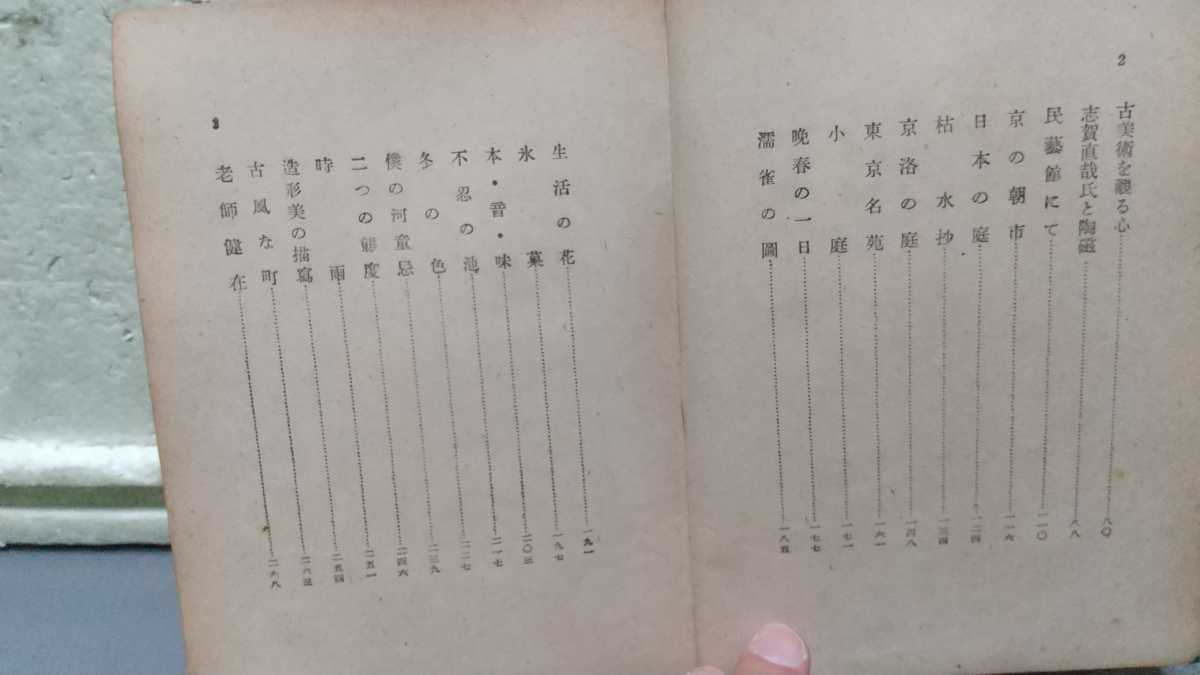 2
古美術を觀る心……八〇
志賀直哉氏と陶磁……八八
民藝館にて……一一〇
京の朝市……一一六
日本の庭……一二四
枯水抄……一三四
京洛の庭……一四八
東京名苑……一六一
小庭……一七一
晩春の一日……一七七
濡雀の圖……一八五
3
生活の花……一九一
氷菓……一九七
本・音・味……二〇三
不忍の池……二一七
冬の色……二二七
僕の河童忌……二三九
二つの態度……二四六
時雨……二五一
造形美の描寫……二五四
古風な町……二六三
老師健在……二六八